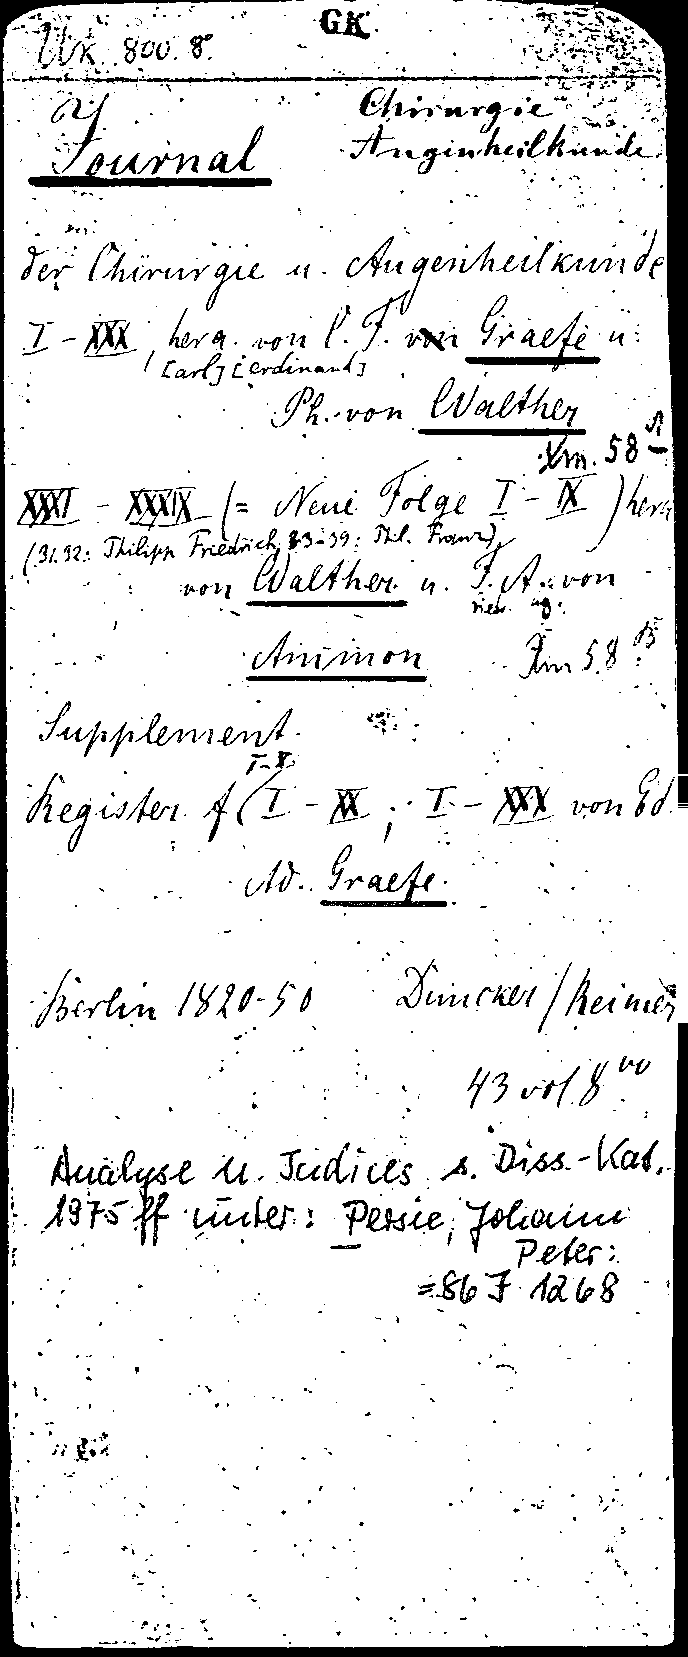 GK
Uk 800. 8.
Chirurgie
Augenheilkunde
Journal
der Chirurgie u. Augenheilkunde
I - XXX, herg. von C. F. von Graefe u.
[arl] [erdinand]
Ph. von Walther
Xm. 58
XXXI - XXXIX (= Neue Folge I - IX) herg
(31.32: Philipp Friedrich, 33-39: Phil. Franz)
von Walther u. F. A. von
Ammon Xm 58
Supplement
I-X
Register f (I - XX ; I - XXX von Ed.
Ad. Graefe.
Berlin 1820-50 Duncker / Reimer
43 vol 8vo
Analyse u. Indices s. Diss.-Kat.
1975 ff unter: Persie, Johann
Peter:
=86 J 1268